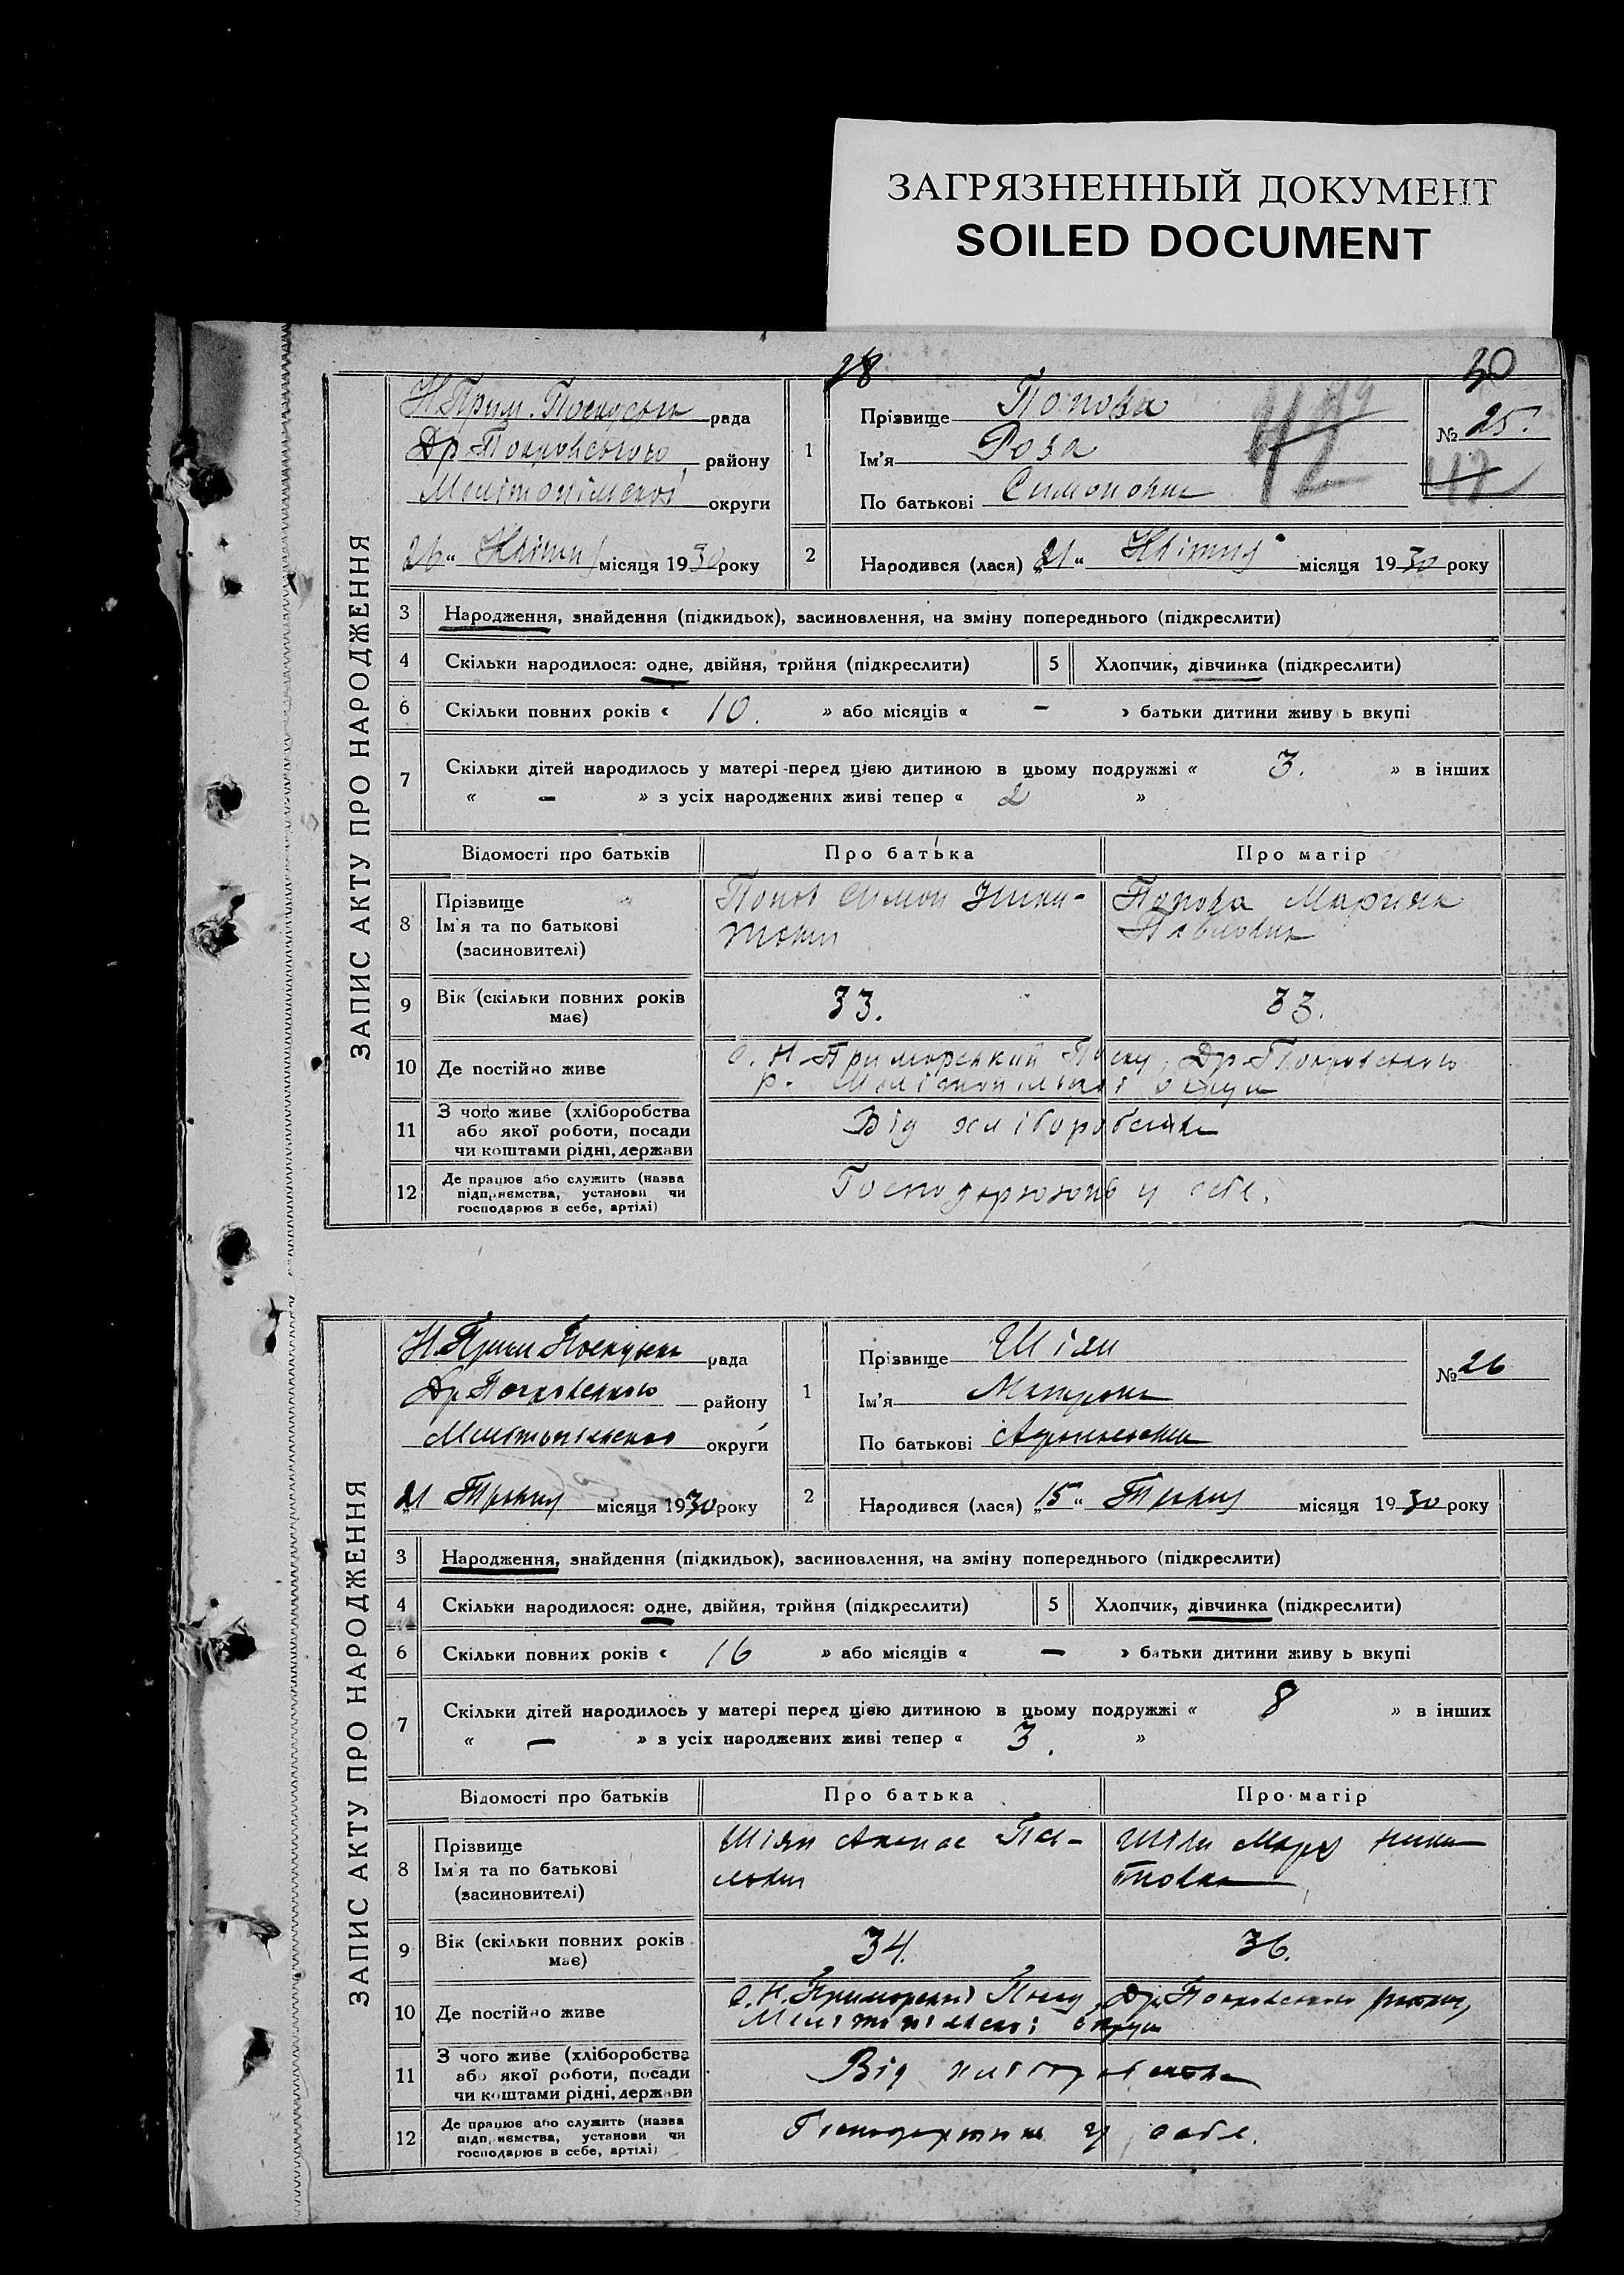 ЗАГРЯЗНЕННЫЙ ДОКУМЕНТ
SOILED DOCUMENT
28
30
ЗАПИС АКТУ ПРО НАРОДЖЕННЯ
Н. Прим. рада
Др-Покровського району
Мелітопільської округи
26 “ Квітня місяця 1930 року
1
Прізвище Попова
Ім'я Роза
По батькові Симоновна
№ 25.
42
2
Народився (лася) „21 “ Квітня місяця 1930 року
3 Народження, знайдення (підкидьок), засиновлення, на зміну попереднього (підкреслити)
4 Скільки народилося: одне, двійня, трійня (підкреслити) 5 Хлопчик, дівчинка (підкреслити)
6 Скільки повних років « 10. » або місяців « - » батьки дитини живу ь вкупі
7 Скільки дітей народилось у матері перед цією дитиною в цьому подружжі « 3. » в інших
« - » з усіх народжених живі тепер « 2 »
Відомості про батьків Про батька Про матір
8 Прізвище
Ім'я та по батькові
(засиновителі)
Попов Симон
Попова
Павловна
9 Вік (скільки повних років
має)
33. 33.
10 Де постійно живе
с. Н-Приморський Др-Покровського
р. Мелітопільської округи
11 З чого живе (хліборобства
або якої роботи, посади
чи коштами рідні, держави
Від хліборобства
12 Де працює або служить (назва
підприємства, установи чи
господарює в себе, артілі)
Господарюють у себе.
ЗАПИС АКТУ ПРО НАРОДЖЕННЯ
Н. Прим рада
Др-Покровського району
Мелітопільської округи
„21 Травня місяця 1930 року
1
Прізвище Шіян
Ім'я Матрона
По батькові
№ 26
2
Народився (лася) „15 “ Травня місяця 1930 року
3 Народження, знайдення (підкидьок), засиновлення, на зміну попереднього (підкреслити)
4 Скільки народилося: одне, двійня, трійня (підкреслити) 5 Хлопчик, дівчинка (підкреслити)
6 Скільки повних років « 16 » або місяців « - » батьки дитини живу ь вкупі
7 Скільки дітей народилось у матері перед цією дитиною в цьому подружжі « 8 » в інших
« - » з усіх народжених живі тепер « 3. »
Відомості про батьків Про батька Про матір
8 Прізвище
Ім'я та по батькові
(засиновителі)
Шіян
Шіян
9 Вік (скільки повних років
має)
34. 36.
10 Де постійно живе
с. Н. Др-Покровського району,
Мелітопільської округи
11 З чого живе (хліборобства
або якої роботи, посади
чи коштами рідні, держави
Від хліборобства
12 Де працює або служить (назва
підприємства, установи чи
господарює в себе, артілі)
Господарюють у себе.